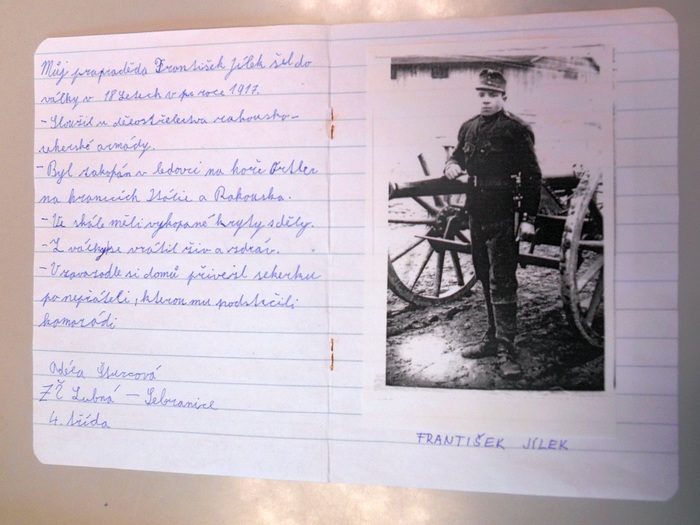 Můj prapraděda František Jílek šel do
války v 18 letech v roce 1917.
- Sloužil u dělostřelectva rakousko-
uherské armády.
- Byl zakopán v ledovci na hoře Ortler
na hranicích Itálie a Rakouska.
- Ve skále měli vykopané kryty s děly.
- Z války se vrátil živ a zdráv.
- V zavazadle si domů přivezl sekerku
po nepříteli, kterou mu podstrčili
kamarádi
Adéla
ZŠ Lubná - Sebranice
4. třída
FRANTIŠEK JÍLEK